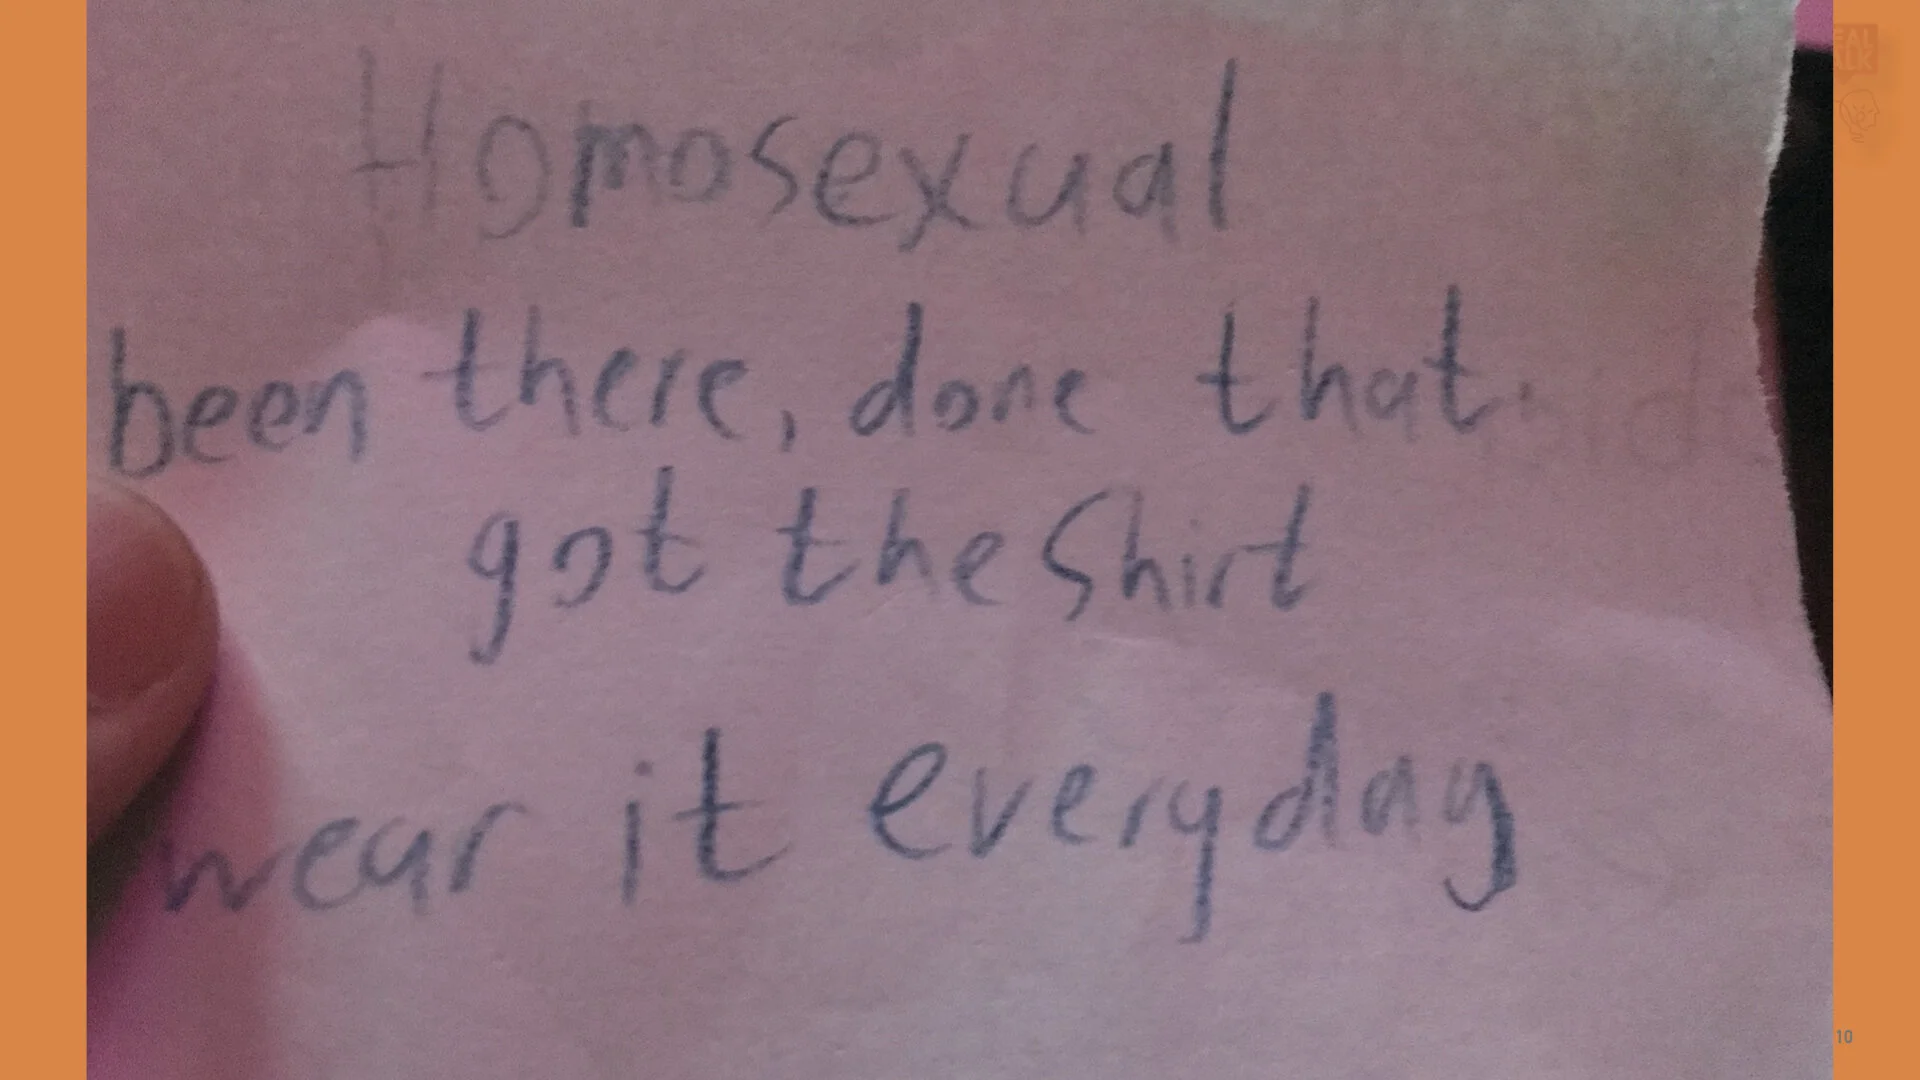 Homosexual
been there, done that.
got the Shirt
wear it everyday
10